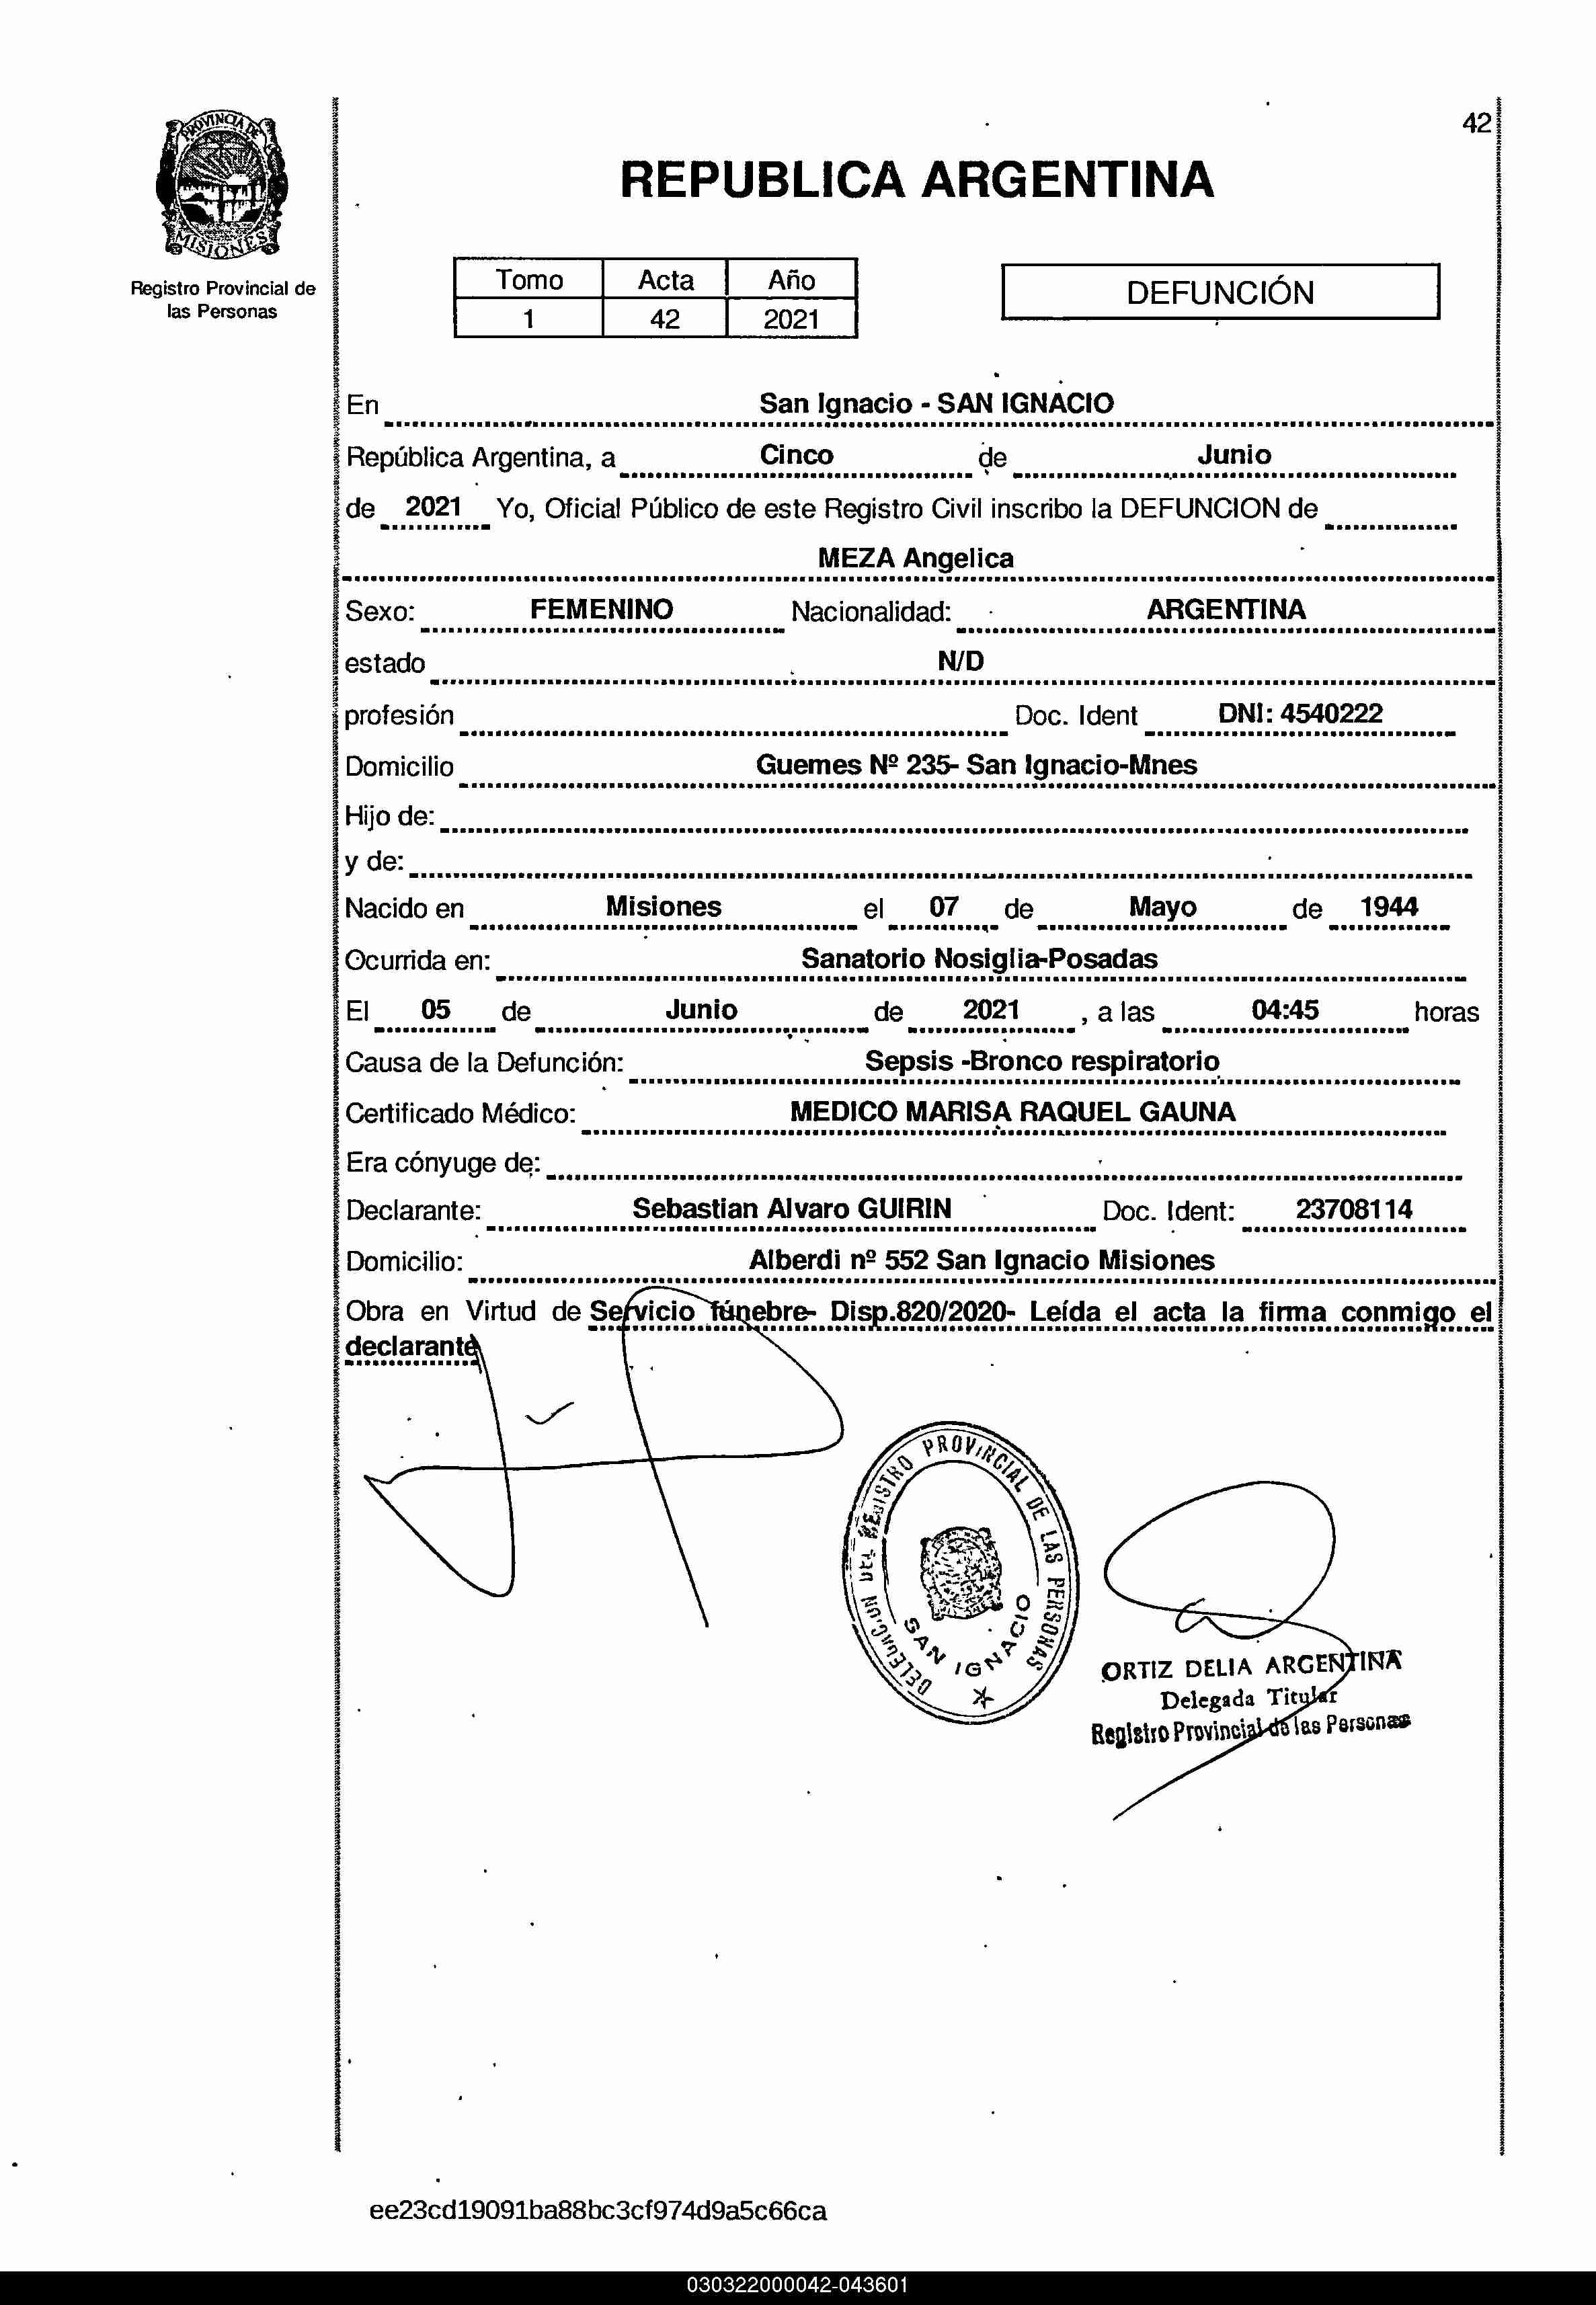 42
PROVINCIA DE
MISIONES
Registro Provincial de
las Personas
REPUBLICA ARGENTINA
Tomo Acta Año
1 42 2021
DEFUNCIÓN
En San Ignacio - SAN IGNACIO
República Argentina, a Cinco de Junio
de 2021 Yo, Oficial Público de este Registro Civil inscribo la DEFUNCION de
MEZA Angelica
Sexo: FEMENINO Nacionalidad: ARGENTINA
estado N/D
profesión Doc. Ident DNI: 4540222
Domicilio Guemes Nº 235- San Ignacio-Mnes
Hijo de:
y de:
Nacido en Misiones el 07 de Mayo de 1944
Ocurrida en: Sanatorio Nosiglia-Posadas
El 05 de Junio de 2021 , a las 04:45 horas
Causa de la Defunción: Sepsis -Bronco respiratorio
Certificado Médico: MEDICO MARISA RAQUEL GAUNA
Era cónyuge de:
Declarante: Sebastian Alvaro GUIRIN Doc. Ident: 23708114
Domicilio: Alberdi nº 552 San Ignacio Misiones
Obra en Virtud de Servicio fúnebre- Disp.820/2020- Leída el acta la firma conmigo el
declarante
DELEGACION DEL REGISTRO PROVINCIAL DE LAS PERSONAS
SAN IGNACIO
ORTIZ DELIA ARGENTINA
Delegada Titular
Registro Provincial de las Personas
ee23cd19091ba88bc3cf974d9a5c66ca
030322000042-043601